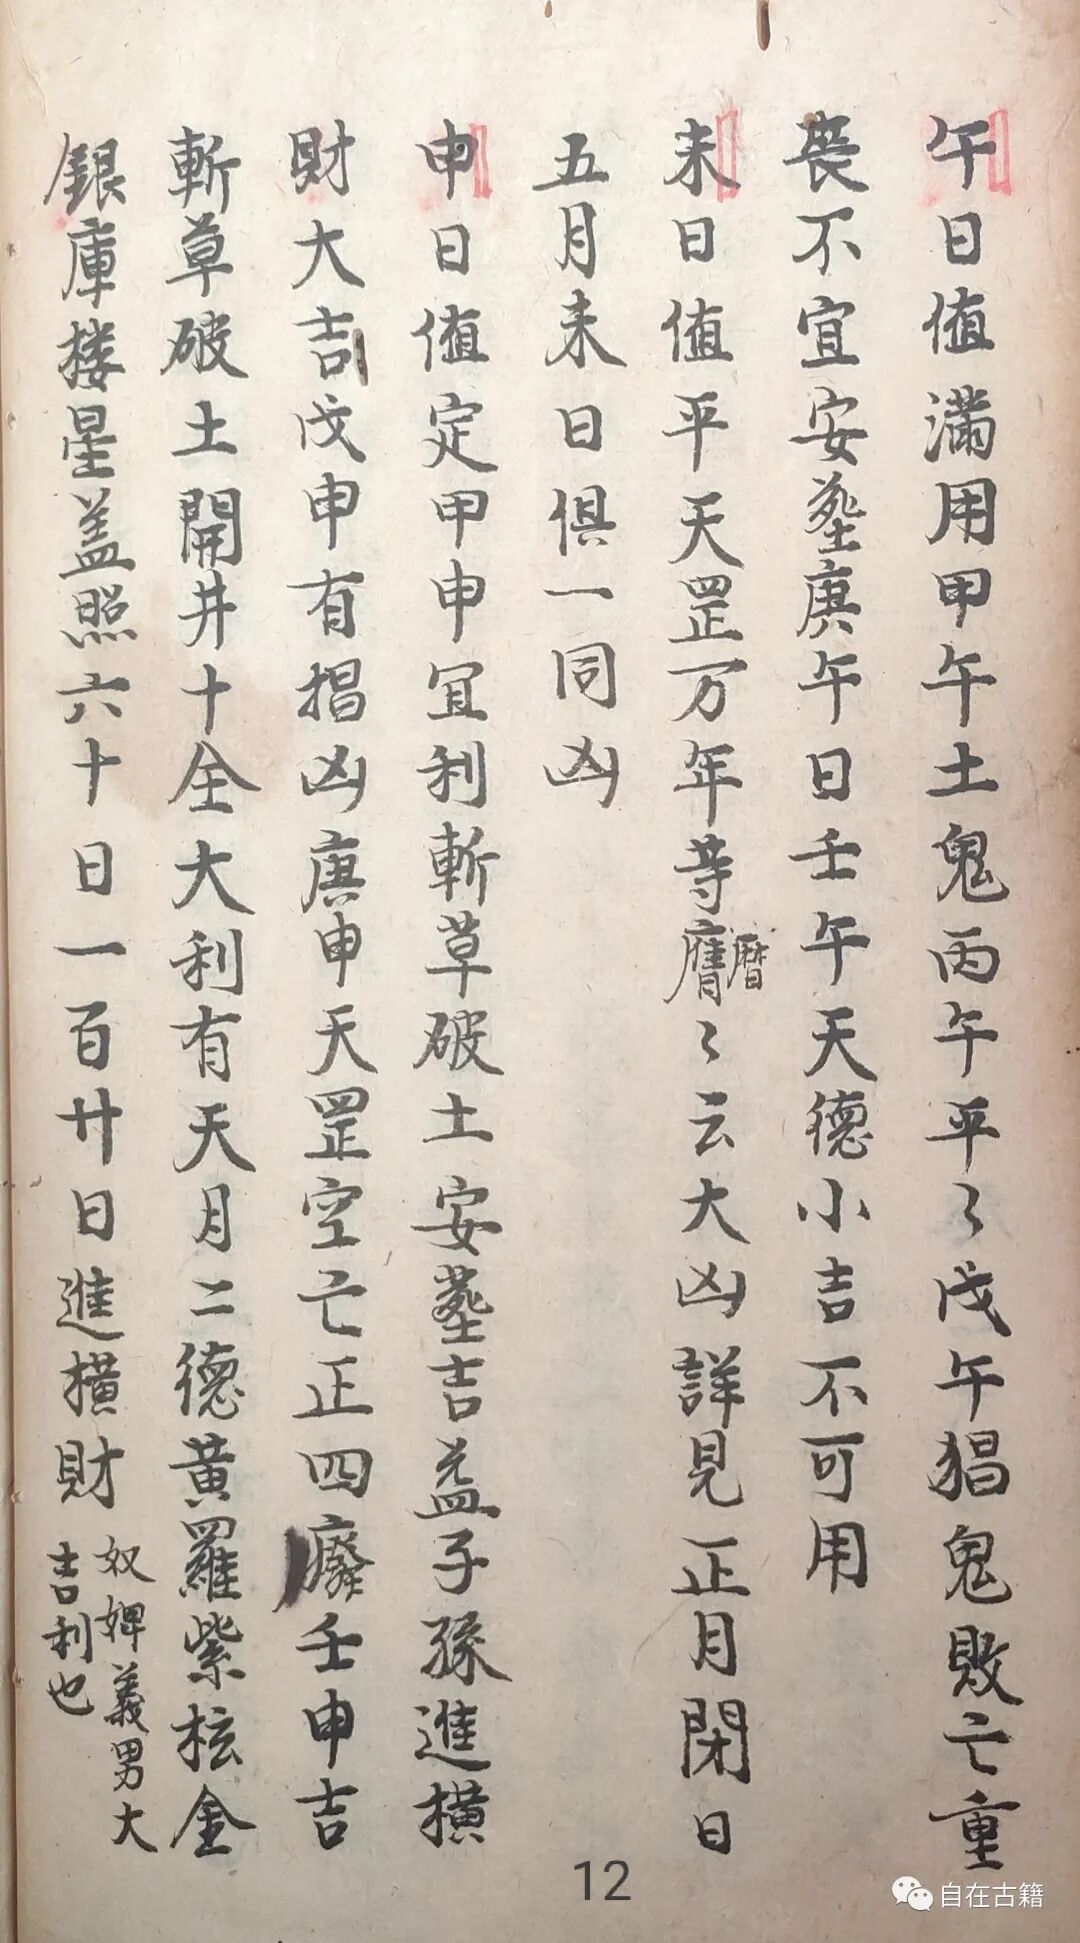 午日值滿用甲午土鬼丙午平〻戊午猖鬼敗亡重
丧不宜安塟庚午日壬午天德小吉不可用
未日值平天罡万年等曆〻云大凶詳見正月閉日
曆
五月未日俱一同凶
申日值定甲申宜利斬草破土安塟吉益子孫進橫
財大吉戊申有猖凶庚申天罡空亡正四廢壬申吉
斬草破土開井十全大利有天月二德黃羅紫桉金
銀庫楼星盖照六十日一百廿日進橫財
奴婢義男大
吉利也
12
自在古籍